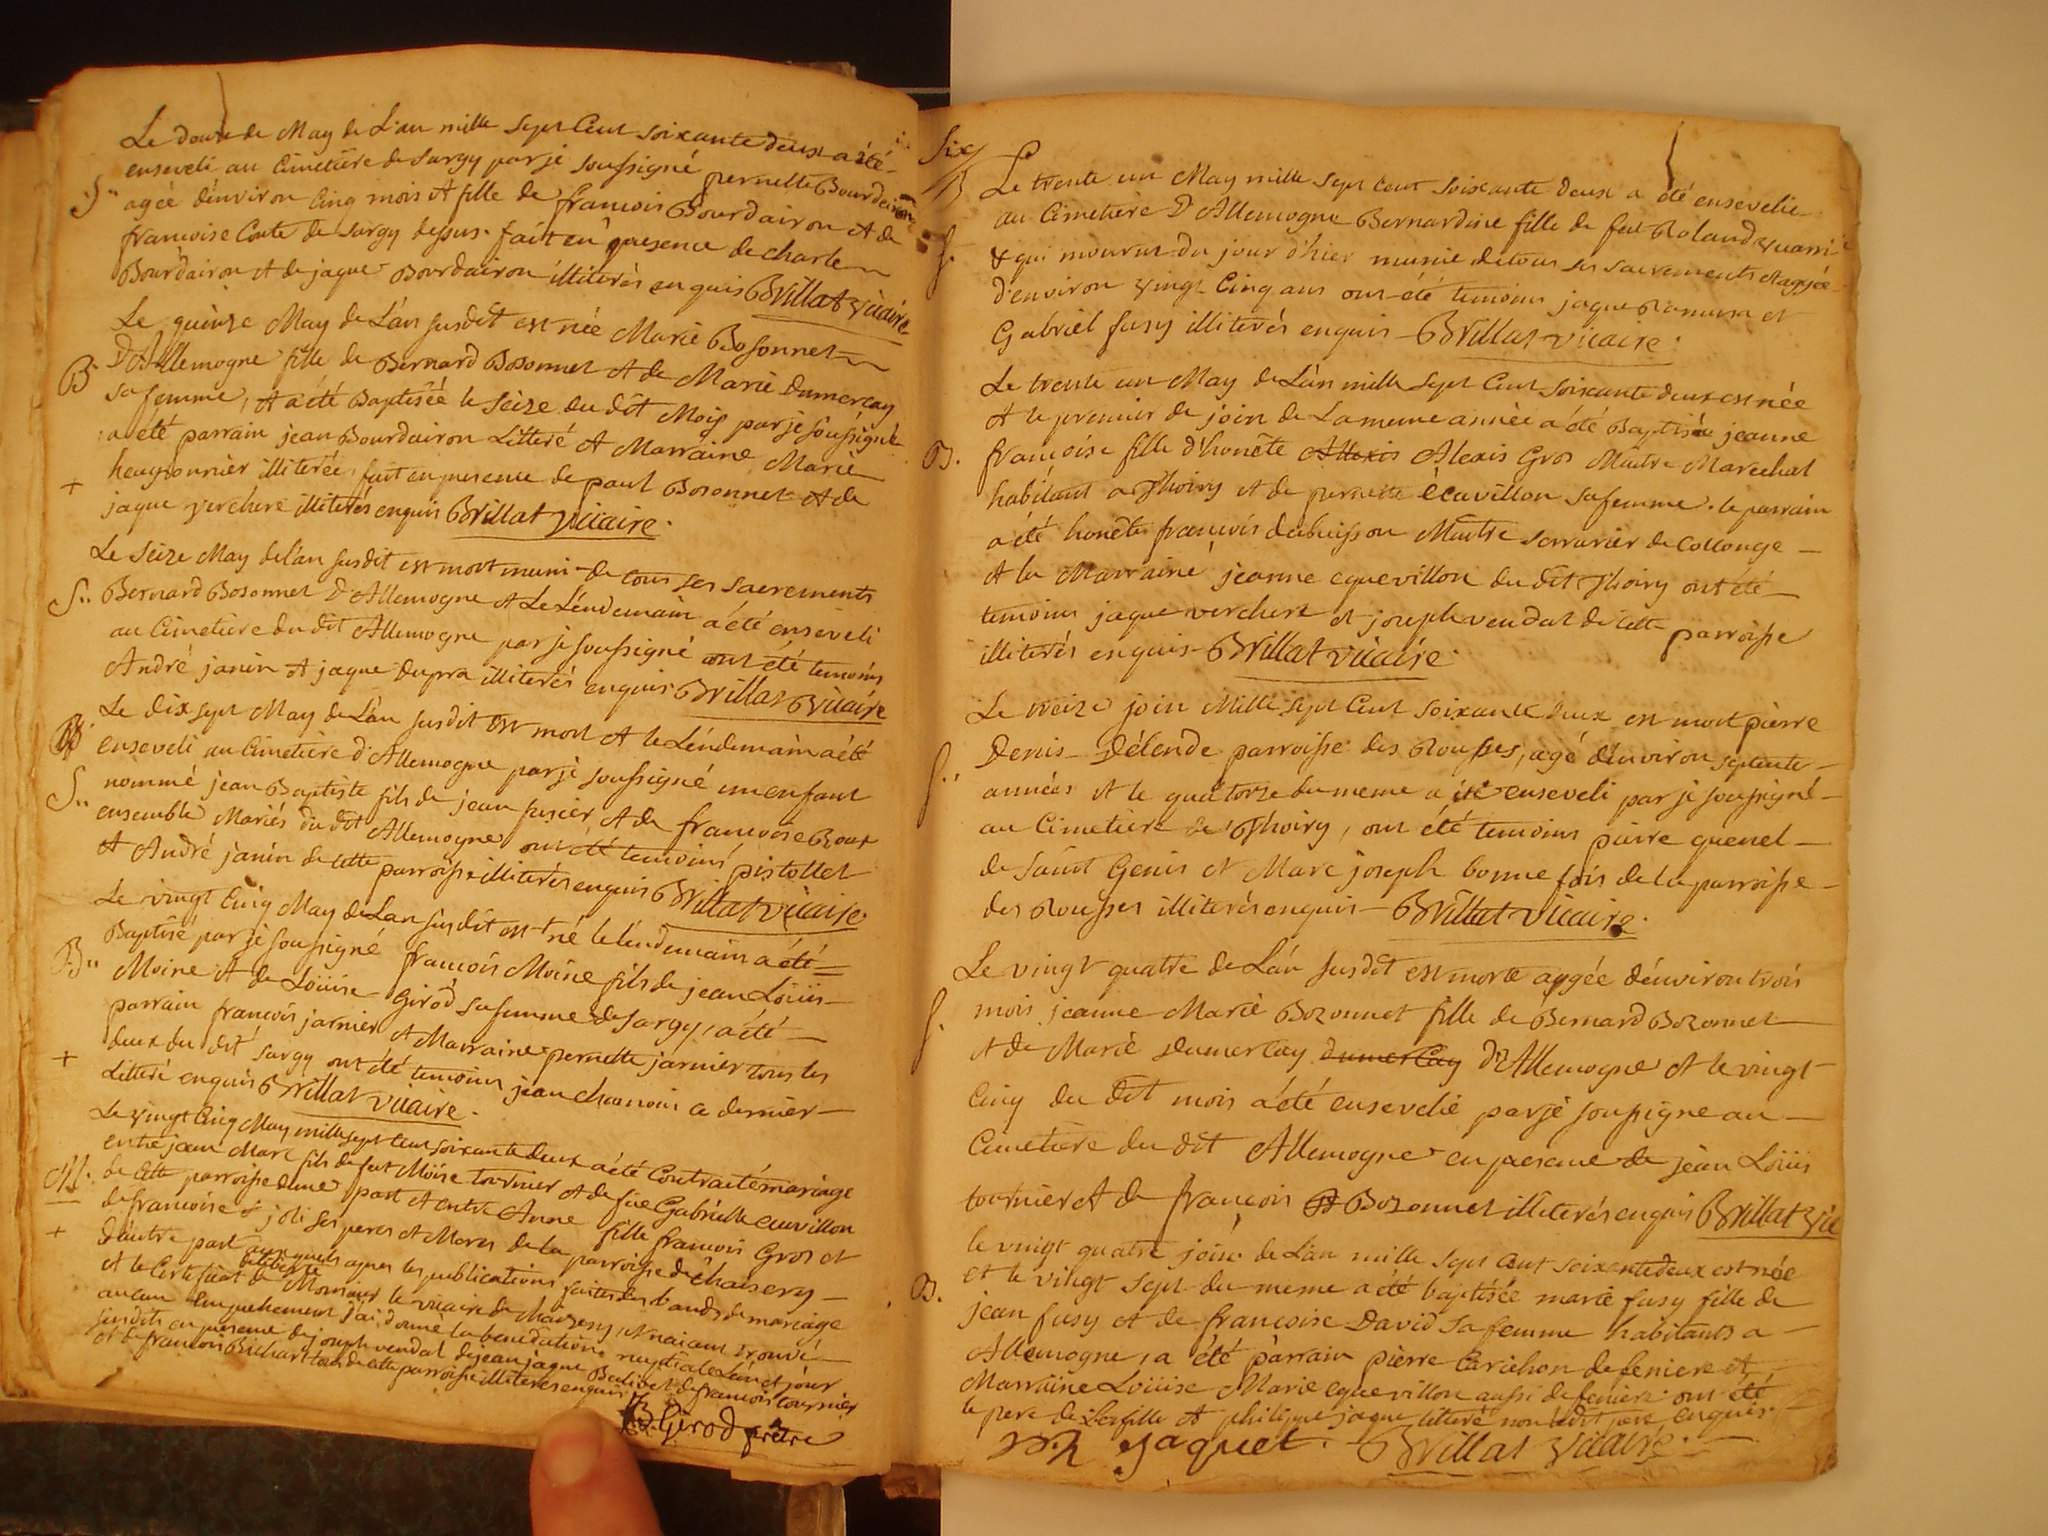 Le douze de May de L'an mille sept Cent soixante deux a été
enseveli au Cimetiére de Sargy par je soussigné pernette Bourdairon
S.. agée d'environ Cinq mois et fille de francois Bourdairon et de
francoise Conte de Sargy dessus. fait en presence de charle
Bourdairon et de jaque Bourdairon illiterés enquis Brillat vicaire
Le quinze May de L'an susdit est née Marie Bosonnet
B. D'Allemogne fille de Bernard Bosonnet et de Marie Dumercay
sa femme, et a été Baptisée le seize du dit Mois par je soussigné
a été parrain jean Bourdairon Litteré et Marraine Marie
+ illiterée, fait en presence de paul Bosonnet et de
jaque verchere illiterés enquis Brillat vicaire.
Le seize May de l'an susdit est mort muni de tous ses sacrements
S.. Bernard Bosonnet D'Allemogne et Le Léndemain a été enseveli
au Cimetiere du dit Allemogne par je soussigné ont été temoins
André janin et jaque dupra illiterés enquis Brillat vicaire
Le dix sept May de L'an susdit est mort et le Léndemain a été
enseveli au Cimetiére d'Allemogne par je soussigné un enfant
S.. nommé jean Baptiste fils de jean et de francoise Roux
ensemble Mariés du dit Allemogne ont été temoins pistollet
et André janin de cette parroisse illiterés enquis Brillat vicaire
Le vingt Cinq May de L'an susdit est né le léndemain a été
Baptisé par je soussigné francois Moine fils de jean Loüis
B.. Moine et de Loüise Girod sa femme de Sargy, a été
parrain francois jarnier et Marraine pernette jarnier tous les
+ deux du dit Sargy ont été temoins jean chanoin ce dernier
Litteré enquis Brillat vicaire.
Le vingt Cinq May mille sept Cent soixante deux a été Contracté mariage
entre jean Marc fils de feu Moïse tournier et de füe Gabrielle cuvillon
M. de cette parroisse d'une part et entre Anne fille francois Gros et
+ de francoise joli ses peres et Meres de la parroisse de chaisery
d'autre part auxquels apres les publications faites des bands de mariage
et le Certificat de Monsieur le vicaire de chaisery, N'aiant trouvé
aucun Empechement j'ai donné la benediction nuptiale L'an et jour
susdits en presence de joseph vendat de jean jaque Balivet de francois tournier
et de francois Bichart tous de cette parroisse illiterés enquis
B. Girod prêtre
Six
Le trente un May mille sept Cent soixante deux a été ensevelie
au Cimetiére D'Allemogne Bernardine fille de feu Roland
S. & qui mourut du jour d'hier munie de tous ses sacrements et aggée
d'environ vingt Cinq ans ont été temoins jaque et
Gabriel fusy illiterés enquis Brillat vicaire.
Le trente un May de L'an mille sept Cent soixante deux est née
et le premier de join de La meme année a été Baptisée jeanne
B. francoise fille d'honête Allexis Alexis Gros Maitre Marechal
habitant a Thoiry et de pernette ècavillon sa femme. le parrain
a été honête francois dubuisson Maitre serrurier de Collonge
et la Marraine jeanne equevillon du dit Thoiry ont été
temoins jaque verchere et joseph vendat de cette parroisse
illiterés enquis Brillat vicaire.
Le treize join Mille sept Cent soixante deux est mort pierre
Denis Délende parroisse des Rousses, agé d'environ septente
S.. années et le quatorze du meme a été enseveli par je soussigné
au Cimetiere de Thoiry, ont été temoins pierre quenel
de saint Genis et Marc joseph bonne fois de la parroisse
des Rousses illiterés enquis Brillat vicaire.
Le vingt quatre de L'an susdit est morte aggée d'environ trois
S. mois jeanne Marie Bozonnet fille de Bernard Bozonnet
et de Marie Dumercay dumercay d'Allemogne et le vingt
Cinq du dit mois a été ensevelie par je soussigne au
Cimetiere du dit Allemogne en presence de jean Loüis
tournier et de francois Bozonnet illiterés enquis Brillat vic
le vingt quatre join de L'an mille sept Cent soixente deux est née
B. et le vingt sept du meme a été baptisée marie fusy fille de
jean fusy et de francoise David sa femme habitants a
Allemogne, a été parrain pierre Carichon de feniere et
Marraine Loüise Marie equevillon aussi de feniere ont été
le pere de La fille et philippe jaque litteré non ledit pere enquis.
Jaquet. Brillat vicaire.